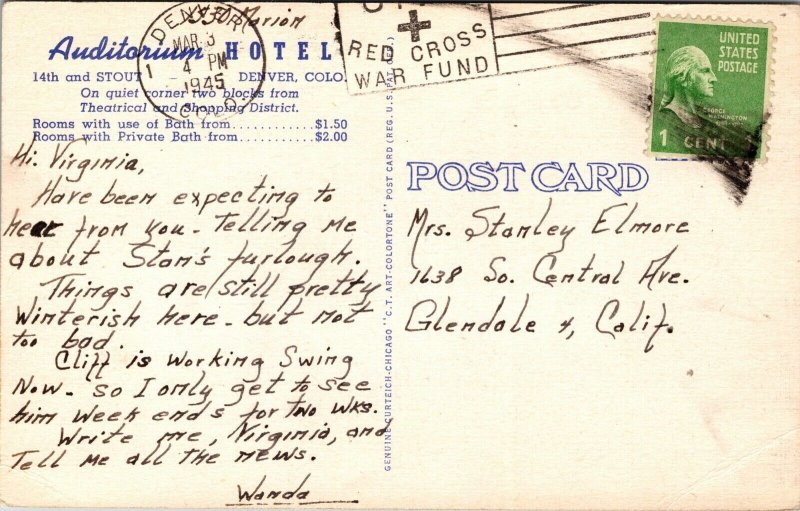 3330 Marion
DENVER
MAR 3
4 PM
1945
COLO.
1
RED CROSS
WAR FUND
UNITED
STATES
POSTAGE
GEORGE
WASHINGTON
1 CENT
Auditorium HOTEL
14th and STOUT DENVER, COLO.
On quiet corner two blocks from
Theatrical and Shopping District.
Rooms with use of Bath from............$1.50
Rooms with Private Bath from............$2.00
Hi. Virginia,
Have been expecting to
hear from you - Telling me
about Stan's furlough.
Things are still pretty
Winterish here - but not
too bad.
Cliff is working Swing
Now - so I only get to see
him week ends for two wks.
Write me, Virginia, and
Tell me all the news.
Wanda
GENUINE CURTEICH-CHICAGO "C.T. ART-COLORTONE" POST CARD (REG. U.S. PAT. OFF.)
POST CARD
Mrs. Stanley Elmore
1638 So. Central Ave.
Glendale 4, Calif.